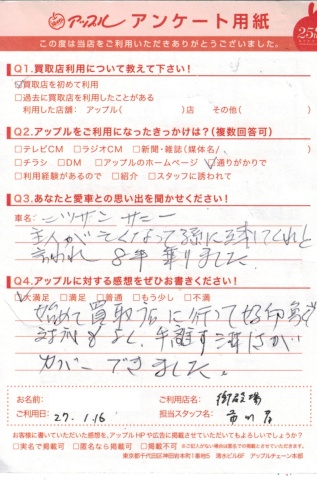 アップル アンケート用紙
この度は当店をご利用いただきありがとうございました。
Q1.買取店利用について教えて下さい!
☑買取店を初めて利用
□過去に買取店を利用したことがある
利用した店舗: アップル( )店 その他( )
Q2.アップルをご利用になったきっかけは?(複数回答可)
□テレビCM □ラジオCM □新聞・雑誌(媒体名/ )
□チラシ □DM □アップルのホームページ ☑通りがかりで
□利用経験があるので □紹介 □スタッフに誘われて
Q3.あなたと愛車との思い出を聞かせください!
車名: ニッサン サニー
主人が亡くなって孫に乗ってくれと
言われ 8年乗りました。
Q4.アップルに対する感想をぜひお書きください!
☑大満足 □満足 □普通 □もう少し □不満
始めて買取店に行って好印象で
対応もよく、手離す淋しさが
カバーできました。
お名前:
ご利用店名: 御経塚
ご利用日: 27.1.16
担当スタッフ名: 市川
お客様に書いていただいた感想を、アップルHPや広告に掲載させていただいてもよろしいでしょうか?
□実名で掲載可 □匿名なら掲載可 □掲載不可
東京都千代田区神田岩本町1番地5 清水ビル6F アップルチェーン本部